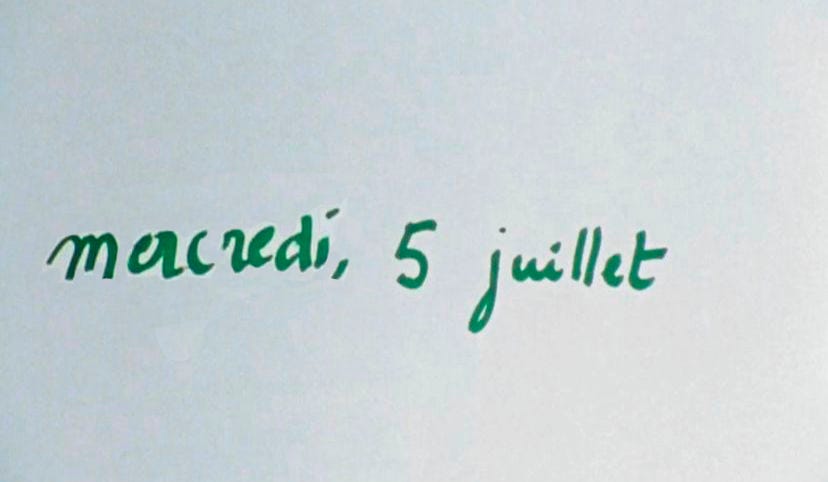 mercredi, 5 juillet